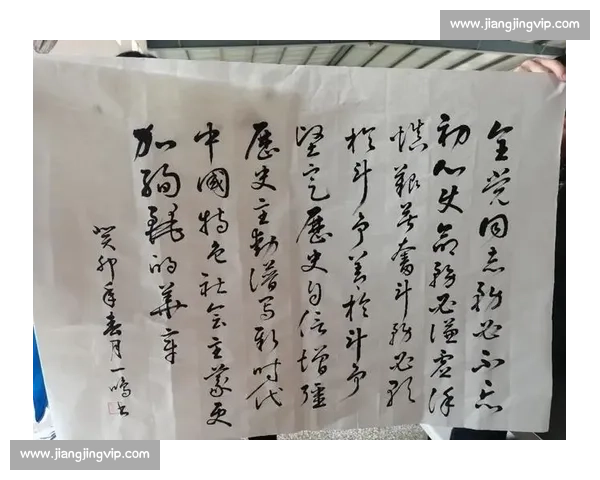 www.jiangjingvip.com
全党同志務必不忘
初心使命務必謙虚谨
慎艱苦奮斗務必敢
於斗争善於斗争
堅定歷史自信增强
歷史主動谱写新時代
中國特色社会主義更
加絢麗的華章
癸卯年春月一鳴书
www.jiangjingvip.com